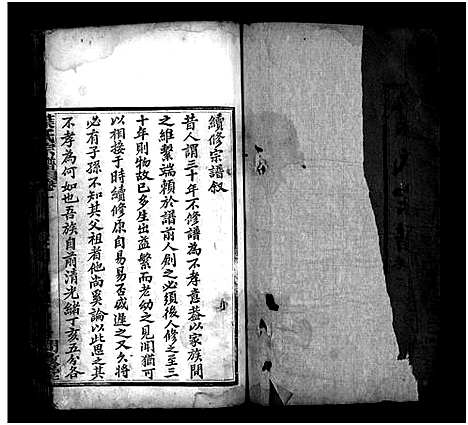 續修宗譜叙
昔人謂三十年不修譜為不孝意蓋以家族間
之維繫端賴於譜前人創之必須後人修之至三
十年則物故已多生出益繁而老幼之見聞猶可
以相接于時續修原自易易至或遲之又久將
必有子孫不知其父祖者他尚奚論以此思之其
不孝為何如也吾族自前清光緒丁亥五分各
葉氏宗譜卷一